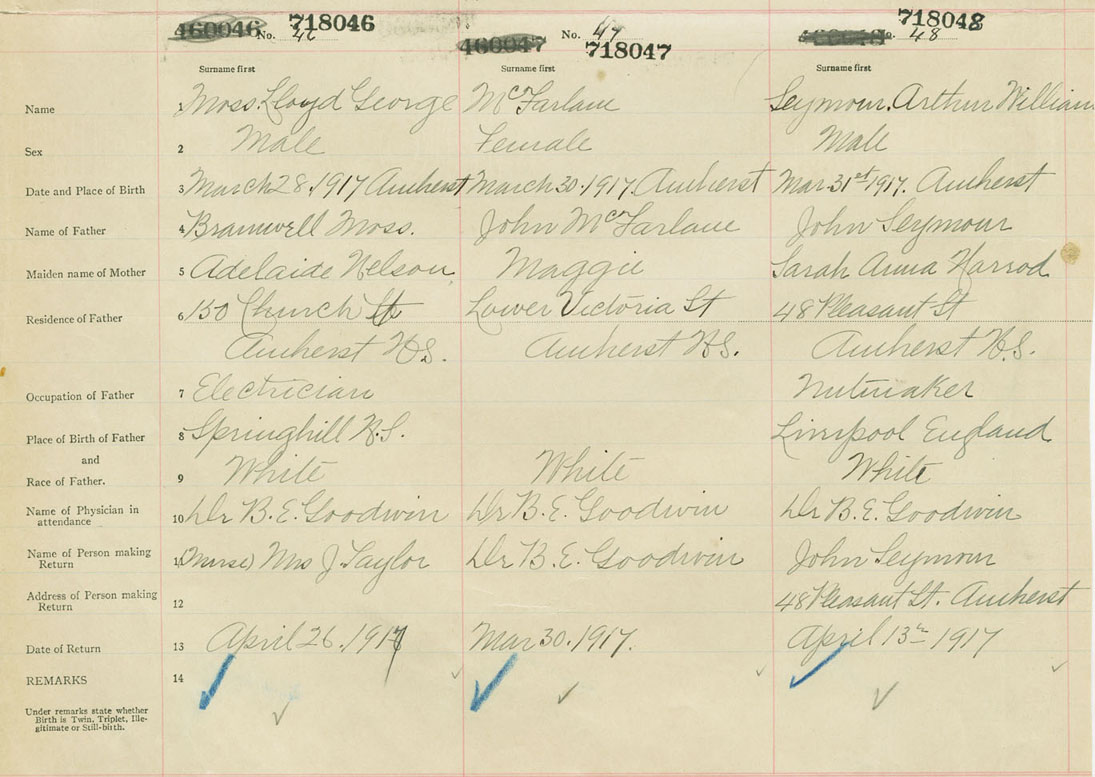 460046 No. 46 718046 460047 No. 47 718047 No. 48 718048
Surname first Surname first Surname first
Name 1 Moss Lloyd George McFarlane Seymour. Arthur William
Sex 2 Male Female Male
Date and Place of Birth 3 March 28. 1917 Amherst March 30. 1917. Amherst Mar 31st 1917. Amherst
Name of Father 4 Bramwell Moss. John McFarlane John Seymour
Maiden name of Mother 5 Adelaide Nelson Maggie Sarah Anna Harrod
Residence of Father 6 150 Church St Lower Victoria St 48 Pleasant St
Amherst N.S. Amherst N.S. Amherst N.S.
Occupation of Father 7 Electrician Nutmaker
Place of Birth of Father 8 Springhill N.S. Liverpool England
and
Race of Father. 9 White White White
Name of Physician in
attendance 10 Dr B. E. Goodwin Dr B. E. Goodwin Dr B. E. Goodwin
Name of Person making
Return 11 (Nurse) Mrs J. Taylor Dr B. E. Goodwin John Seymour
Address of Person making
Return 12 48 Pleasant St. Amherst
Date of Return 13 April 26. 1917 Mar 30. 1917. April 13th 1917
REMARKS 14
Under remarks state whether
Birth is Twin, Triplet, Ille-
gitimate or Still-birth.